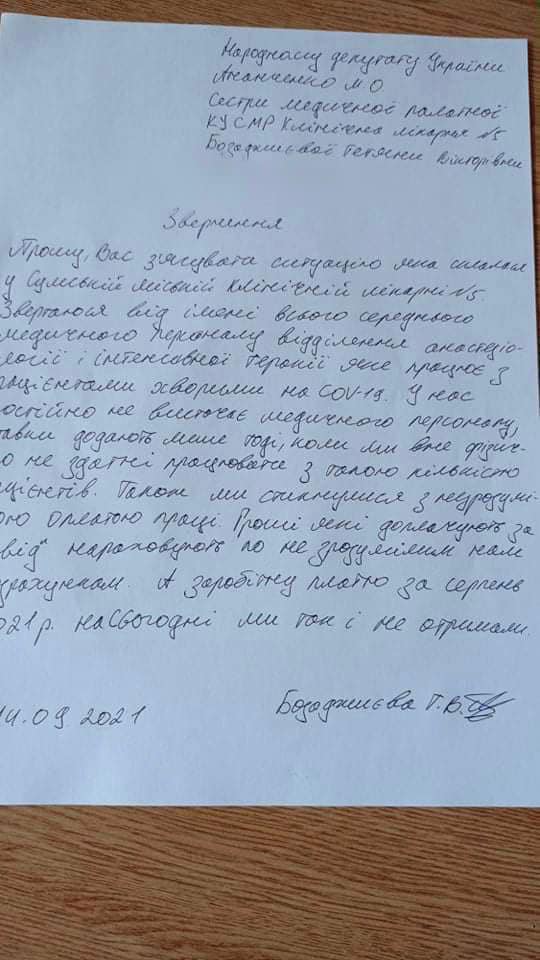 Народному депутату України
Ананченко М О
Сестри медичної палатної
КУ СМР Клінічна лікарня №5
Бозаджиєвої Тетяни Вікторівни
Звернення
Прошу, Вас з'ясувати ситуацію яка склалася
у Сумській міській клінічній лікарні №5.
Звертаюся від імені всього середнього
медичного персоналу відділення анастезіо-
логії і інтенсивної терапії яке працює з
ацієнтами хворими на COV-19. У нас
остійно не вистачає медичного персоналу,
тавки додають лише тоді, коли ми вже фізич-
о не здатні працювати з такою кількістю
ацієнтів. Також ми стикнулися з незрозумі-
ою оплатою праці. Гроші які доплачують за
від" нараховують по не зрозумілим нам
рахункам. А заробітну платню за серпень
021 р. на сьогодні ми так і не отримали.
14.09 2021
Бозаджиєва Т.В.